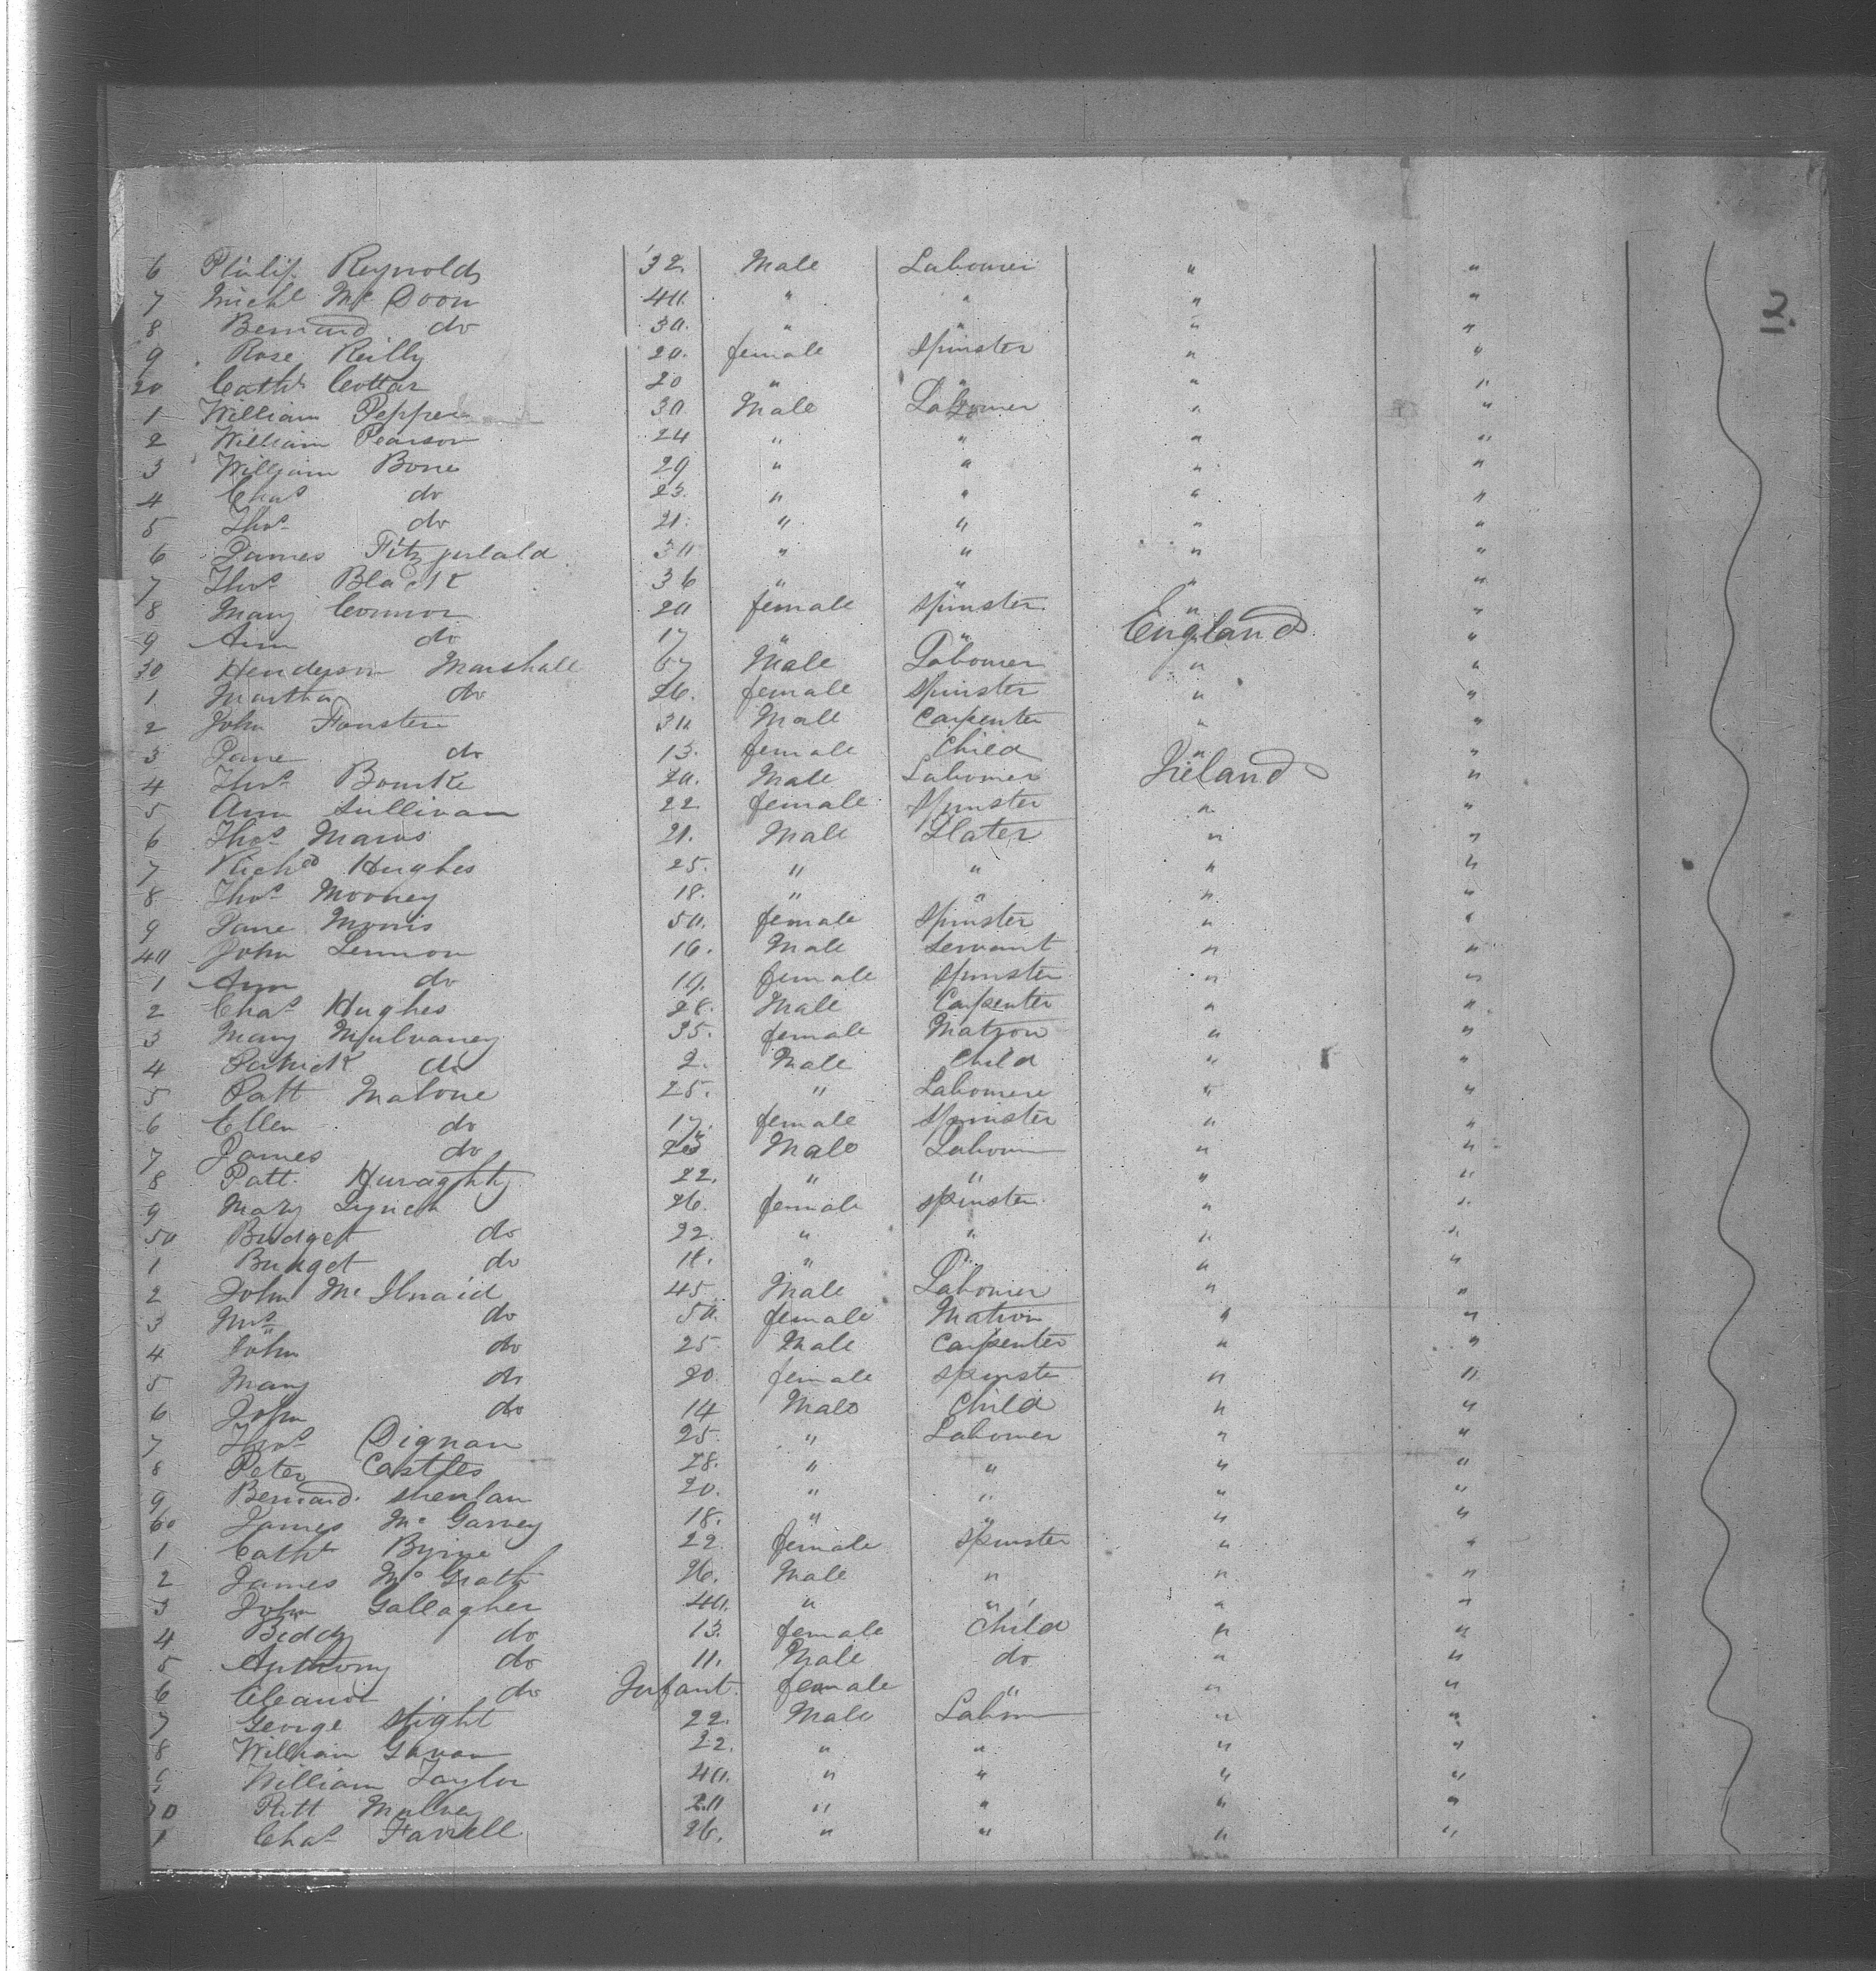 2.
6 Philip Reynolds 32. Male Labourer " "
7 Michl Mc Doon 40. " " " "
8 Bernard do 30. " " " "
9 Rose Reilly 20. female Spinster " "
20 Cathe Cottar 20 " " " "
1 William Pepper 30 Male Labourer " "
2 William Pearson 24 " " " "
3 William Bone 29 " " " "
4 Chas do 23. " " " "
5 Thos do 21. " " " "
6 James Fitzgerald 30 " " " "
7 Thos Black 36 " " " "
8 Mary Connor 20 female Spinster " "
9 Ann do 17 " " England "
30 Henderson Marshall 67 Male Labourer " "
1 Martha do 26. female Spinster " "
2 John 30 Male Carpenter " "
3 Jane do 13. female Child " "
4 Thos Bourke 20. Male Labourer Ireland "
5 Ann Sullivan 22 female Spinster " "
6 Thos 21. Male Slater " "
7 Richd Hughes 25. " " " "
8 Thos Mooney 18. " " " "
9 Jane Morris 50. female Spinster " "
40 John Lennon 16. Male Servant " "
1 Ann do 19. female Spinster " "
2 Chas Hughes 28. Male Carpenter " "
3 Mary Mulvaney 35. female Matron " "
4 Patrick do 2. Male Child " "
5 Patt Malone 25. " Labourer " "
6 Ellen do 17. female Spinster " "
7 James do 23 Male Labour " "
8 Patt. Huraghty 22. " " " "
9 Mary Lynch 26. female Spinster " "
50 Bridget do 22. " " " "
1 Bridget do 18. " " " "
2 John Mc Ilnaid 45 Male Labourer " "
3 Mrs do 50. female Matron " "
4 John do 25 Male Carpenter " "
5 Mary do 20. female Spinster " "
6 John do 14 Male Child " "
7 Thos Dignan 25. " Labourer " "
8 Peter Castles 28. " " " "
9 Bernard Shenlan 20. " " " "
60 James Mc Garvey 18. " " " "
1 Cathe Byrne 22 female Spinster " "
2 James Mc Grath 26. Male " " "
3 John Gallagher 40. " " " "
4 Biddy do 13. female Child " "
5 Anthony do 11. Male do " "
6 Eleanor do Infant. female " " "
7 George Slight 22. Male Labour " "
8 William Gavan 22. " " " "
9 William Taylor 40. " " " "
70 Patt Mulvey 20 " " " "
1 Chas Farrell 26. " " " "